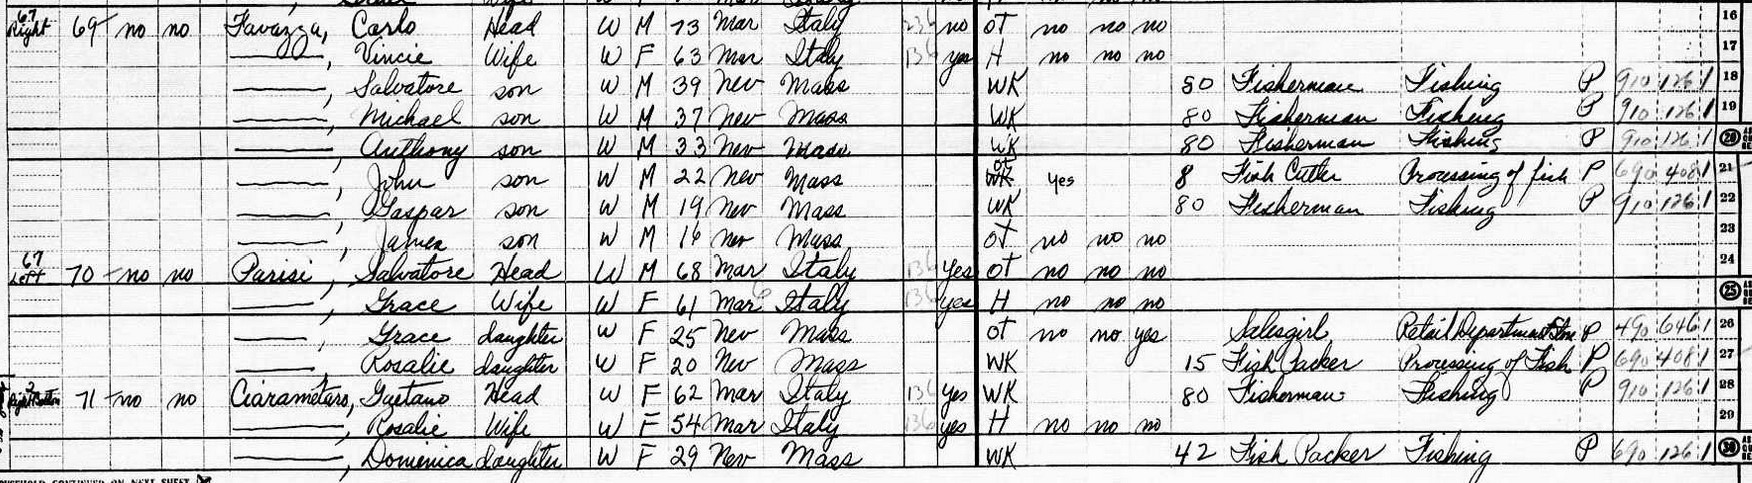 67 Right 69 no no Favazza, Carlo Head W M 73 Mar Italy 236 no OT no no no 16
——, Vincie Wife W F 63 Mar Italy 136 yes H no no no 17
——, Salvatore son W M 39 Nev Mass WK 80 Fisherman Fishing P 910 126 1 18
——, Michael son W M 37 Nev Mass WK 80 Fisherman Fishing P 910 126 1 19
——, Anthony son W M 33 Nev Mass WK 80 Fisherman Fishing P 910 126 1 20
——, John son W M 22 Nev Mass OT WK yes 8 Fish Cutter Processing of fish P 690 408 1 21
——, Gaspar son W M 19 Nev Mass WK 80 Fisherman Fishing P 910 126 1 22
——, James son W M 16 Nev Mass OT no no no 23
67 Left 70 no no Parisi, Salvatore Head W M 68 Mar Italy 136 Yes OT no no no 24
——, Grace Wife W F 61 Mar Italy 136 yes H no no no 25
——, Grace daughter W F 25 Nev Mass OT no no yes Salesgirl Retail Department Store P 490 646 1 26
—— Rosalie daughter W F 20 Nev Mass WK 15 Fish Packer Processing of Fish P 690 408 1 27
2 71 no no Ciarametaro, Gaetano Head W F 62 Mar Italy 136 Yes WK 80 Fisherman Fishing P 910 126 1 28
——, Rosalie Wife W F 54 Mar Italy 136 yes H no no no 29
——, Domenica daughter W F 29 Nev Mass WK 42 Fish Packer Fishing P 690 126 1 30
HOUSEHOLD CONTINUED ON NEXT SHEET